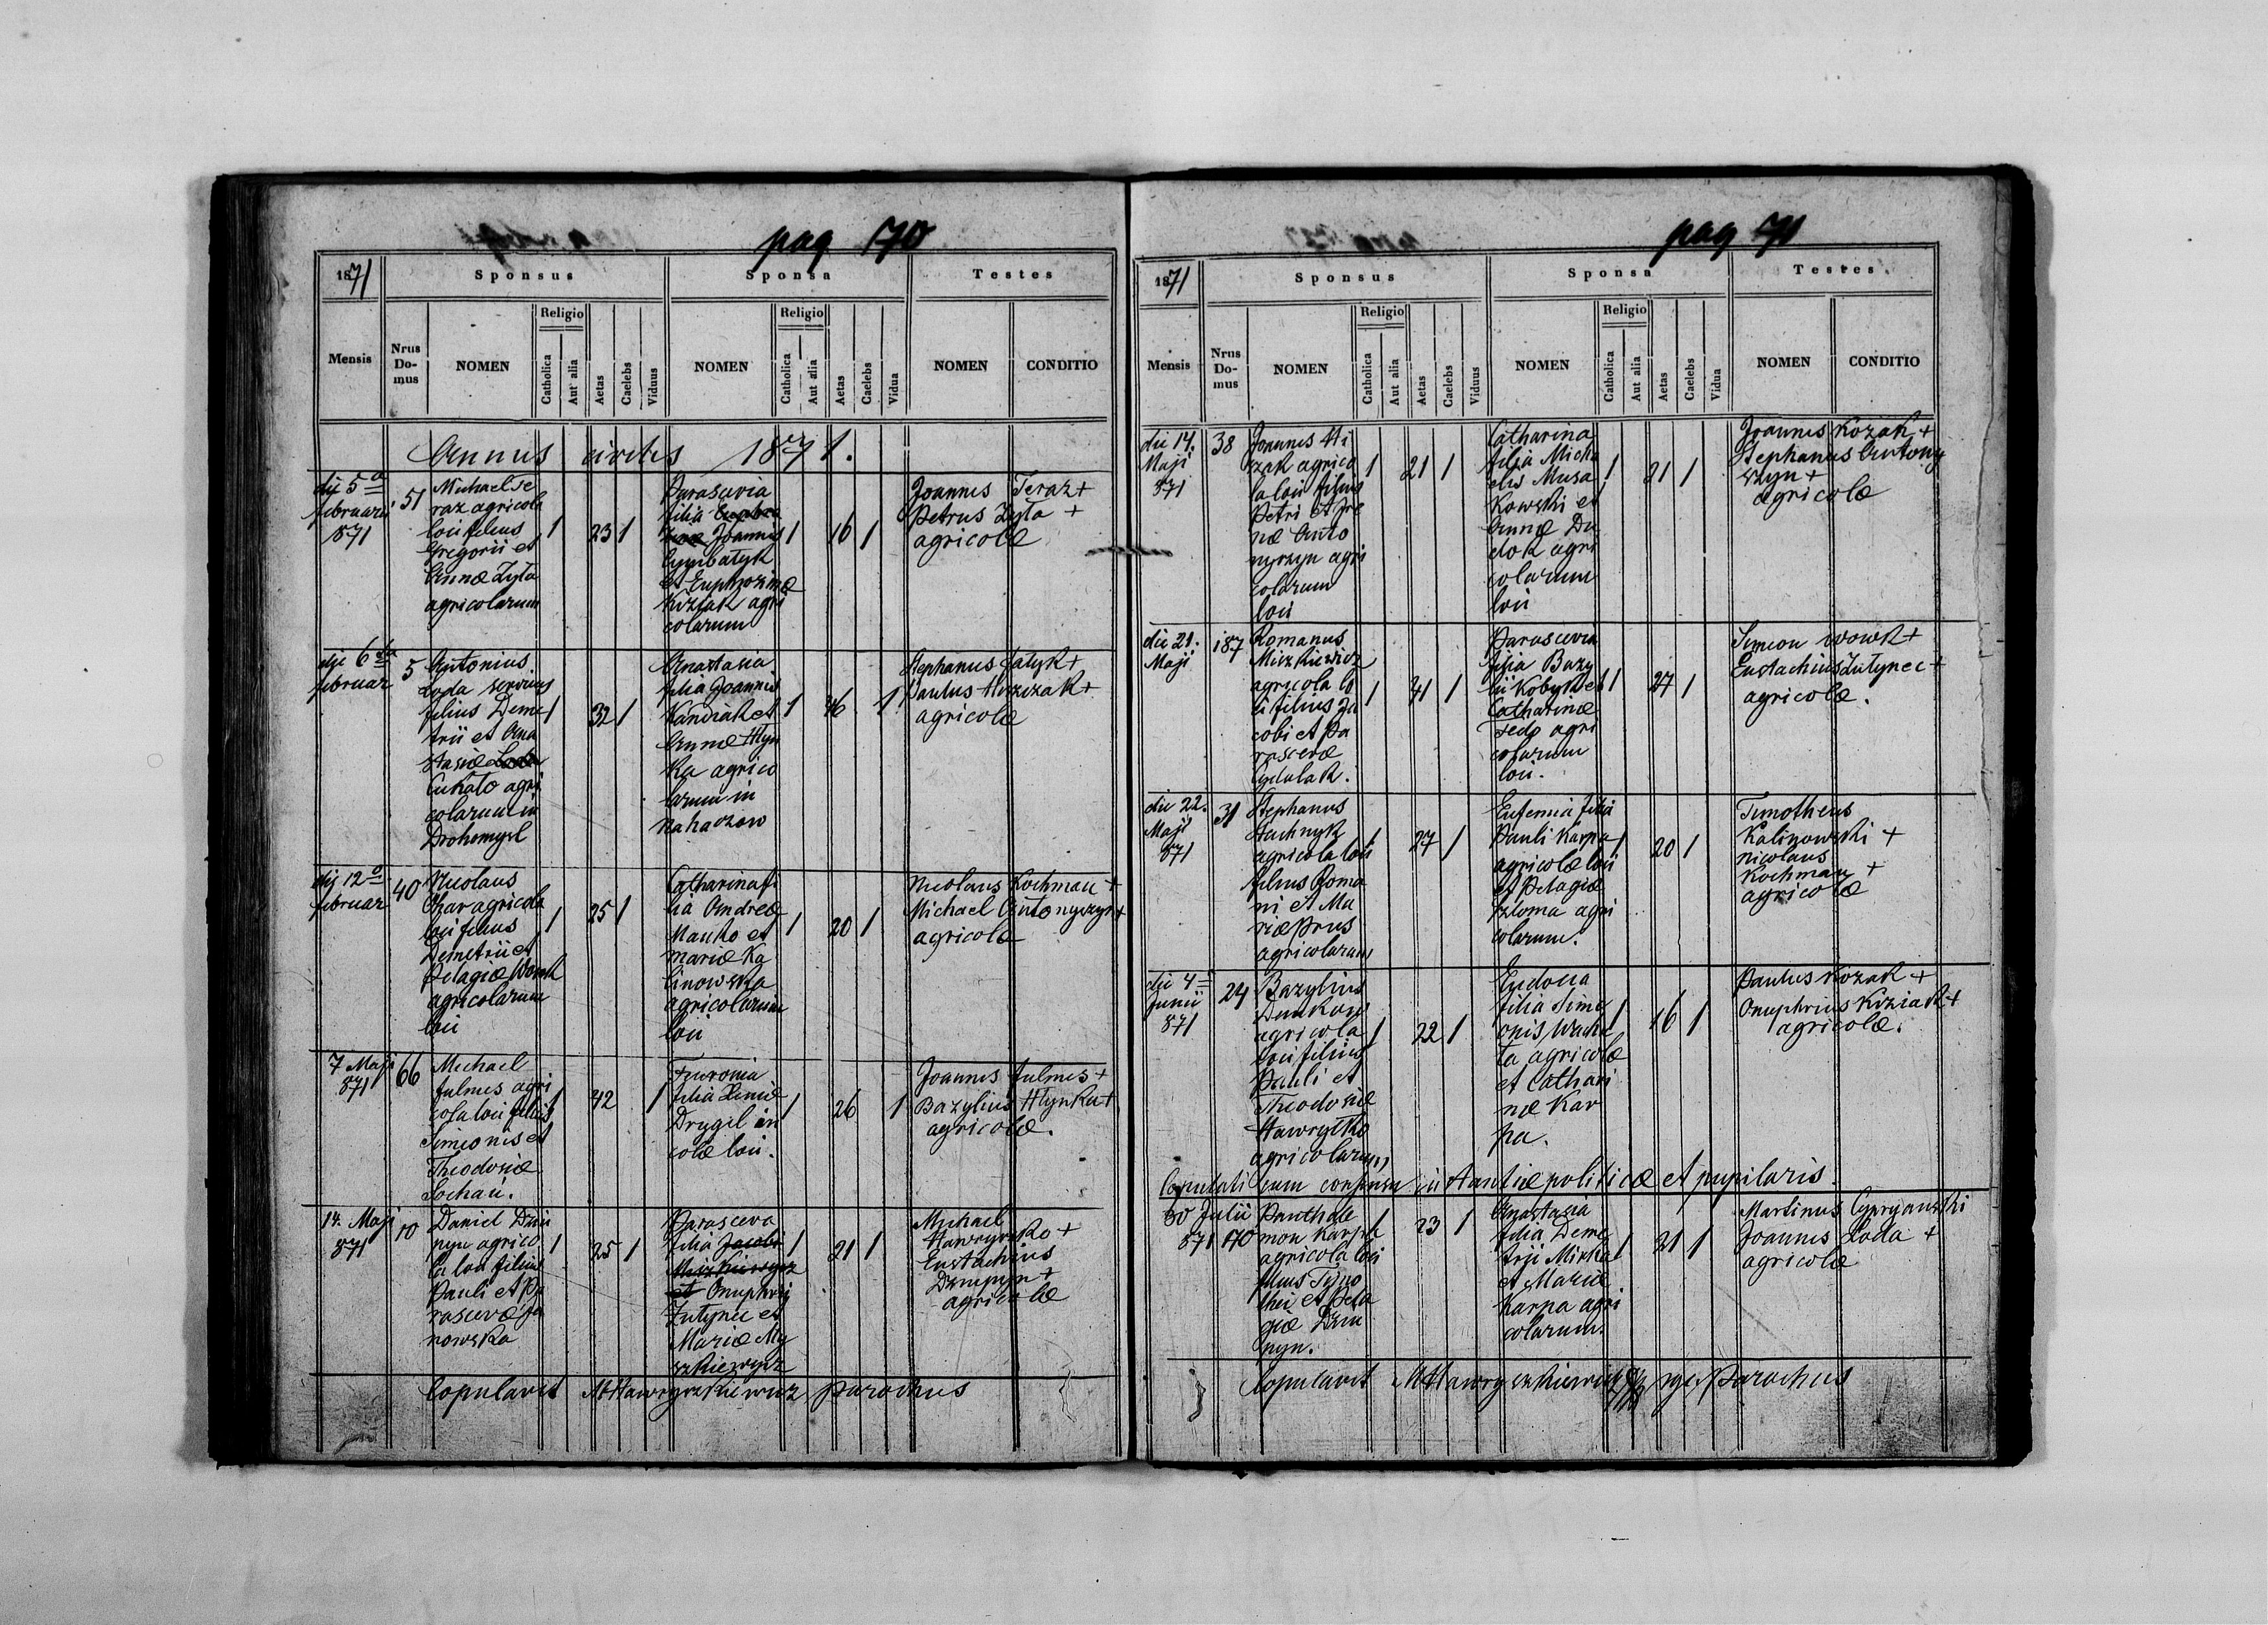 pag 170
1871
Sponsus
Sponsa
Testes
Mensis
Nrus Domus
NOMEN
Religio
Catholica
Aut alia
Aetas
Caelebs
Viduus
NOMEN
Religio
Catholica
Aut alia
Aetas
Caelebs
Vidua
NOMEN
CONDITIO
Annus civilis 1871.
die 5a
februarii
871
51
Michael Te
raz agricola
loci filius
Gregorii et
Annæ Zyła
agricolarum
1
23
1
Parasevia
filia
Joannis
Cymbałyk
et Euphrozinæ
Kiziak agri
colarum
1
16
1
Joannes Teraz +
Petrus Zyła +
agricolæ
die 6ta
februar
5
Antonius
Łoda servus
filius Deme
trii et Ana
stasiæ Łoda
Cukało agri
colarum in
Drohomysl
1
32
1
Anastasia
filia Joannis
Kandiak et
Annæ Hłyn
ka agrico
larum in
Nahaczow
1
46
1
Stephanus Fatyk +
Paulus Hrszczak +
agricolæ
die 12a
februar
40
Nicolaus
agricola
loci filius
Demetrii et
Pelagiæ Wowk
agricolarum
loci
1
25
1
Catharina fi
lia Andreæ
Mańko et
Mariæ Ka
linowska
agricolarum
loci
1
20
1
Nicolaus Kochman +
Michael Antonyszyn +
agricolæ
7 Maji
871
66
Michael
Julmes agri
cola loci filius
Simeonis et
Theodosiæ
Sochań.
1
42
1
Fewronia
filia Xeniæ
Drygel in
colæ loci.
1
26
1
Joannes Julmes +
Bazylius Hłynka +
agricolæ.
14. Maji
871
10
Daniel Dziu
pyn agrico
la loci filius
Pauli et Pa
rascevæ Ja
nowska
1
25
1
Parasceva
filia Jacobi
Miszkiewycz
et Onuphrij
Zutynec et
Mariæ My
szkiewycz
1
21
1
Michael
Hawryszko +
Eustachius
Dziupyn +
agricolæ
Copulavit MHawryszkiewicz parochus
pag 71
1871
Sponsus
Sponsa
Testes
Mensis
Nrus Domus
NOMEN
Religio
Catholica
Aut alia
Aetas
Caelebs
Viduus
NOMEN
Religio
Catholica
Aut alia
Aetas
Caelebs
Vidua
NOMEN
CONDITIO
die 14.
Maji
871
38
Joannes Hi
szak agrico
la loci filius
Petri et Ire
næ Anto
nyszyn agri
colarum
loci
1
21
1
Catharina
filia Micha
elis Musa
kowski et
Annæ Du
dok agri
colarum
loci
1
21
1
Joannes Kozak +
Stephanus Antony
szyn +
agricolæ
die 21.
Maji
187
Romanus
Miszkiewicz
agricola lo
ci filius Ja
cobi et Pa
rascevæ
Cydulak.
1
41
1
Parascevia
filia Bazy
lii Kobyk et
Catharinæ
Fedo agri
colarum
loci.
1
27
1
Simeon Wowk +
Eustachius Zutynec +
agricolæ.
die 22.
Maji
871
31
Stephanus
Stachnyk
agricola loci
filius Roma
ni et Ma
riæ Prus
agricolarum
1
27
1
Eufemia filia
Pauli Karpa
agricolæ loci
et Pelagiæ
Szloma agri
colarum.
1
20
1
Timotheus
Kalinowski +
Nicolaus
Kochman +
agricolæ
die 4a
Junii
871
24
Bazylius
agricola
loci filius
Pauli et
Theodosiæ
Hawryłko
agricolarum
1
22
1
Eudocia
filia Sime
onis Wacha
ta agricolæ
et Cathari
næ Kar
pa.
1
16
1
Paulus Kozak +
Onuphrius Kiziak +
agricolæ.
Copulati cum consensu instantiæ politicæ et pupilaris.
30 Julii
871
170
Panthale
mon Karpa
agricola loci
filius Tymo
thei et Pela
giæ Dziu
pyn.
1
23
1
Anastazia
filia Deme
trii Mikka
et Mariæ
Karpa agri
colarum.
1
21
1
Martinus Cypryanski
Joannes Łoda +
agricolæ
Copulavit MHawryszkiewicz parochus